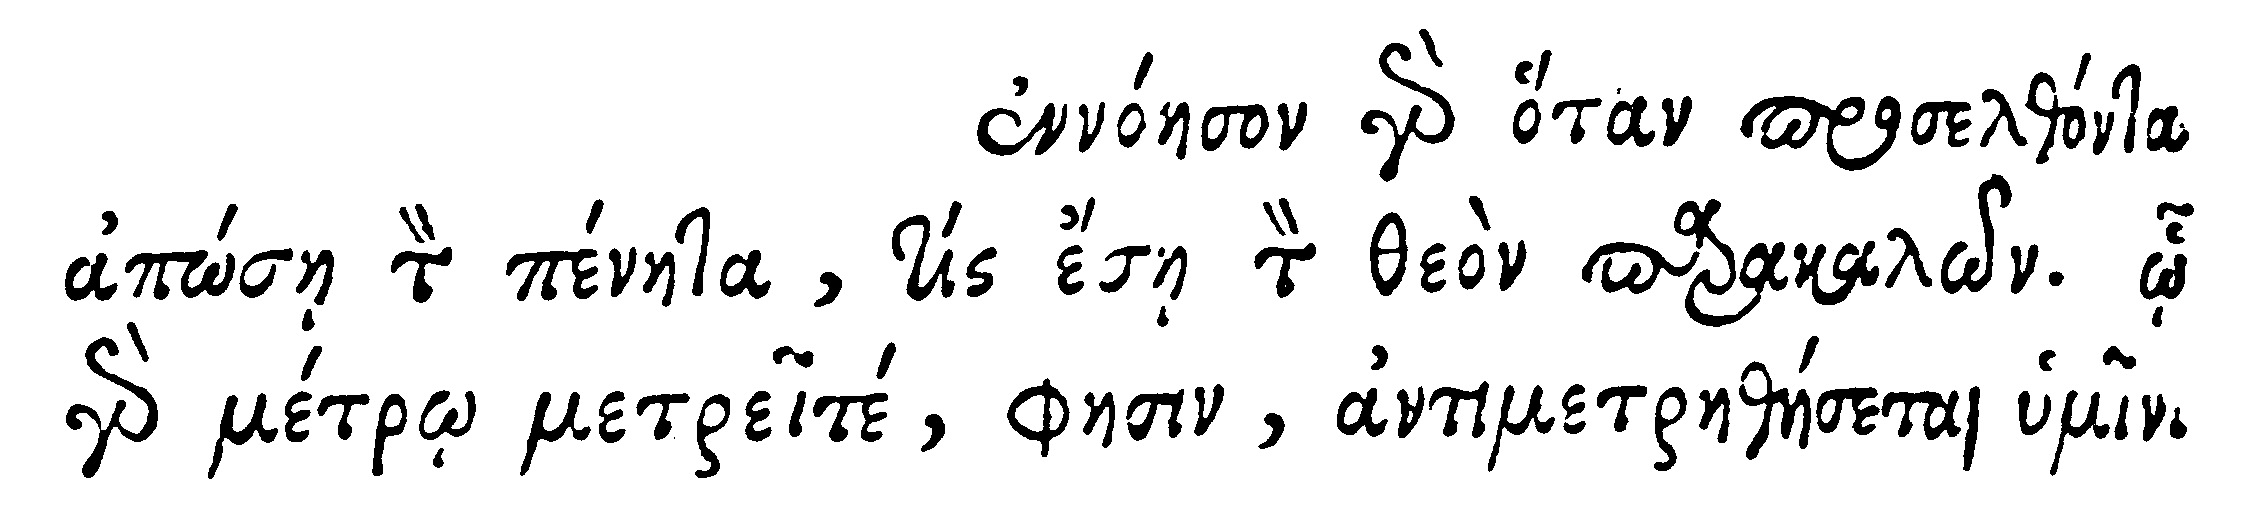 ἐννόησον γὰρ ὅταν προσελθόντα
ἀπώσῃ τὸν πένητα, τίς ἔσῃ τὸν θεὸν παρακαλῶν. ᾧ
γὰρ μέτρῳ μετρεῖτέ, φησιν, ἀντιμετρηθήσεται ὑμῖν.